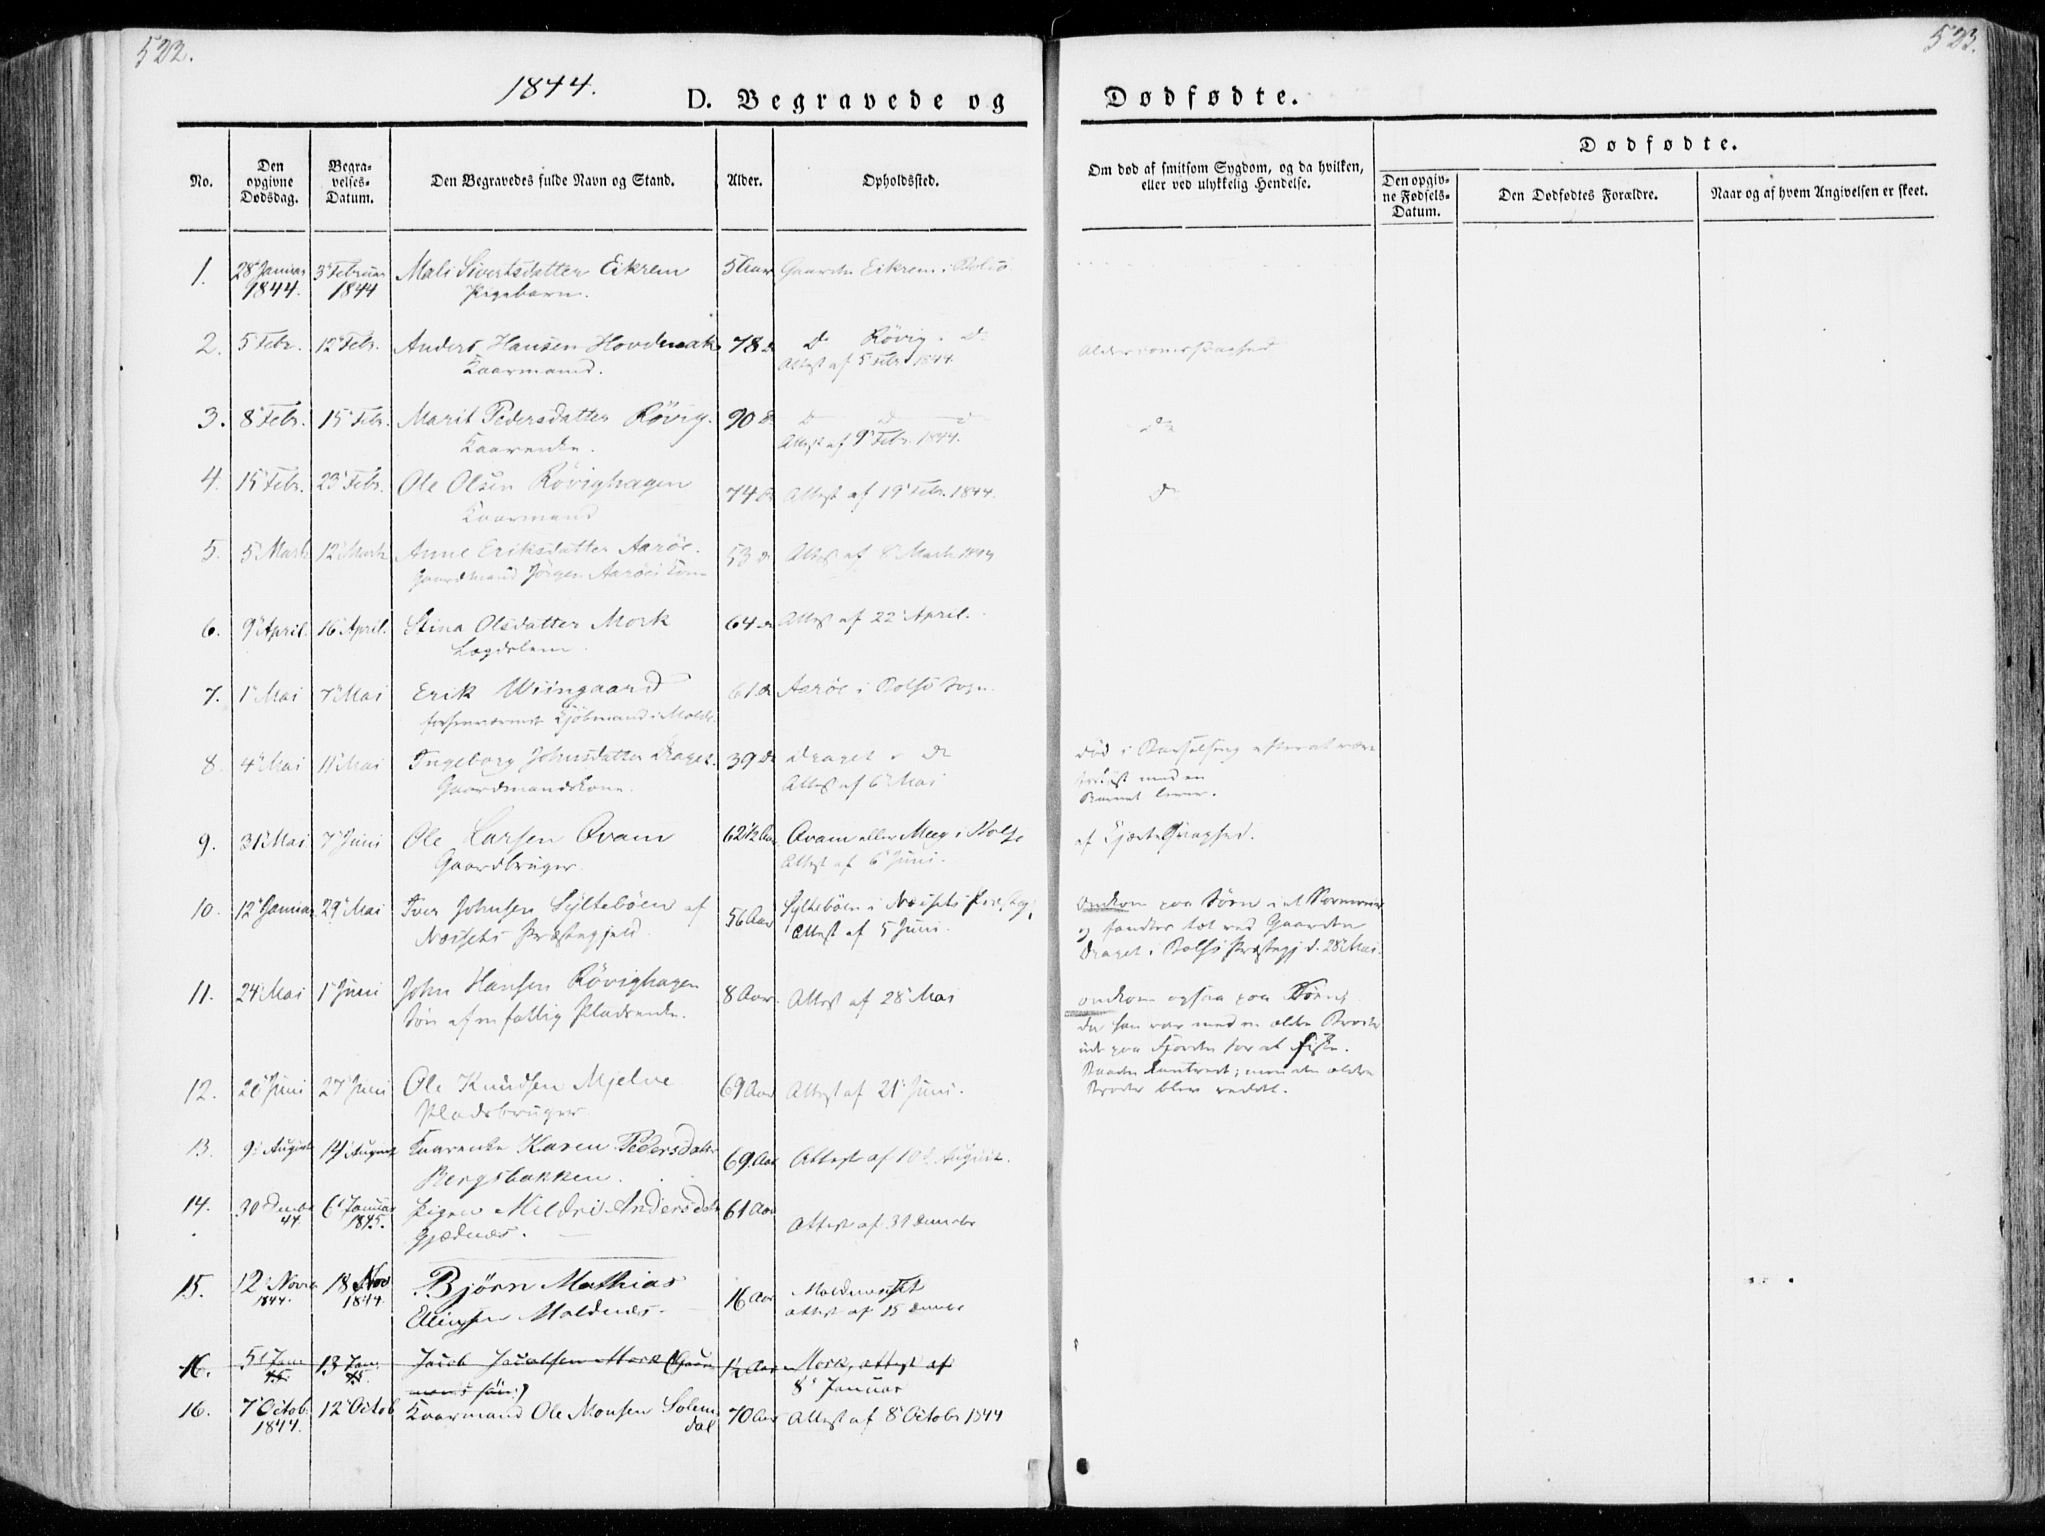 522.
523.
1844.
D. Begravede og
Dødfødte.
No.
Den opgivne Dødsdag.
Begravelses-Datum.
Den Begravedes fulde Navn og Stand.
Alder.
Opholdssted.
Om død af smitsom Sygdom, og da hvilken,
eller ved ulykkelig Hendelse.
Dødfødte.
Den opgivne Fødsels-Datum.
Den Dødfødtes Forældre.
Naar og af hvem Angivelsen er skeet.
1. 28 Januar 3 Februar Mali Sivertsdatter Eikrem 5 Aar Gaarden Eikrem i Bolsö
1844. 1844 Pigebarn.
2. 5 Febr. 12 Febr. Anders Hansen Hovdenak 78 Do Do Rövig i Do
Kaarmand. Attest af 5 Febr 1844
Alderdomssvaghed
3. 8 Febr. 15 Febr. Marit Pedersdatter Rövig. 90 Do
Kaarenke. Attest af 9 Febr. 1844.
Do
4. 15 Febr. 23 Febr. Ole Olsen Rövighagen 74 Do Attest af 19 Febr. 1844.
Kaarmand
Do
5. 5 Marts 12 Marts Anne Eriksdatter Aaröe. 53 Do Attest af 8 Marts 1844
Gaardmand Jörgen Aaröes Kone
6. 9 April. 16 April. Stina Olsdatter Mork 64 Do Attest af 22 April.
Lægdslem.
7. 1 Mai 7 Mai Erik Wiingaard 61 Do Aaröe i Bolsö Sogn.
forhenværende Kjöbmand i Molde.
8. 4 Mai 11 Mai Ingeborg Johnsdatter Draget. 39 Do Draget i Do
Gaardmandskone. Attest af 6 Mai
Död i Barselseng efter at være
forlöst med en
Barnet lever.
9. 31 Mai 7 Juni Ole Larsen Qvam 62 1/2 Aar Qvam eller Meeg i Bolsö
Gaardbruger. Attest af 6 Juni.
af Hjertesvaghed.
10. 12 Januar 29 Mai Iver Johnsen Syltebøen af 56 Aar Syltebøen i Næssets Præstegj.
Næssets Præstegjeld. Attest af 5 Juni.
omkom paa Söen i et
og fandtes tæt ved Gaarden
Draget i Bolsö Præstegj d. 28 Mai.
11. 24 Mai 1 Juni John Hansen Rövighagen 8 Aar. Attest af 28 Mai
Sön af en fattig Pladsenke.
omkom ogsaa paa Söen,
da han var med en ældre Broder
ude paa Fjorden for at fiske.
Baaden kantrede; men den ældre
Broder blev reddet.
12. 20 Juni 27 Juni Ole Knudsen Mjelve 69 Aar Attest af 21 Juni.
Pladsbruger
13. 9 August 14 August Kaarenke Karen Pedersdatter 69 Aar Attest af 10 August.
Bergsbakken.
14. 30 Decmb 6 Januar Pigen Mildri Andersdtr 61 Aar
44. 1845. Gjædnæs. Attest af 31 December
15. 12 Novr 18 Nov Björn Mathias 16 Aar Moldenæsset
1844. 1844. Ellingsen Moldnæs. attest af 15 Decmbr
16. 5 Jan 13 Jan Jacob Jacobsen Mork (Gaard 1/2 Aar Mork, attest af
45. 45 mands sön.) 8 Januar
16. 7 Octob. 12 Octob Kaarmand Ole Monsen Solem 70 Aar Attest af 8 Octobr 1844
1844. dal